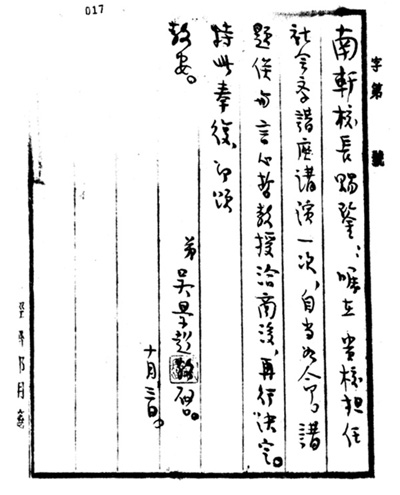 017
字第 號
南軒校長賜鑒：囑在 貴校担任
社会学講座講演一次，自当如命。講
題俟与言心哲教授洽商後，再行決定。
特此奉復，即頌
教安。
弟 吳景超 敬啟。
十月三日。
經濟部用箋